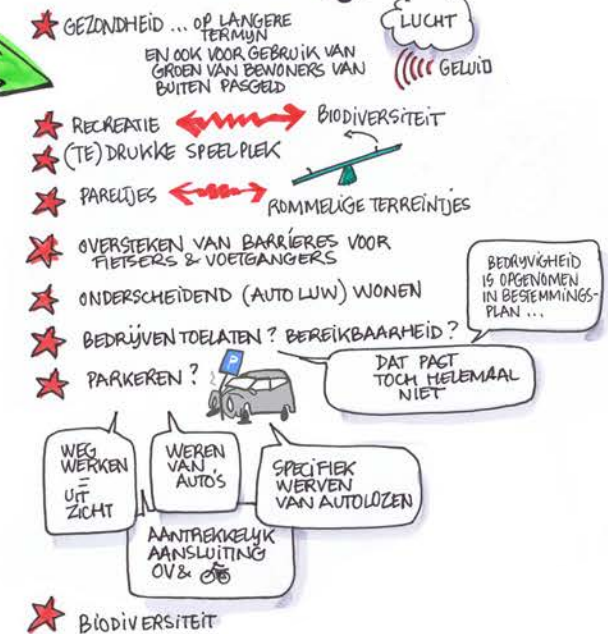 GEZONDHEID ... OP LANGERE
TERMIJN
EN OOK VOOR GEBRUIK VAN
GROEN VAN BEWONERS VAN
BUITEN PASGELD
LUCHT
GELUID
RECREATIE
BIODIVERSITEIT
(TE) DRUKKE SPEELPLEK
PARELTJES
ROMMELIGE TERREINTJES
OVERSTEKEN VAN BARRIERES VOOR
FIETSERS & VOETGANGERS
ONDERSCHEIDEND (AUTO LUW) WONEN
BEDRIJVIGHEID
IS OPGENOMEN
IN BESTEMMINGS-
PLAN ...
BEDRIJVEN TOELATEN? BEREIKBAARHEID?
DAT PAST
TOCH HELEMAAL
NIET
PARKEREN?
P
WEG
WERKEN
=
UIT
ZICHT
WEREN
VAN
AUTO'S
SPECIFIEK
WERVEN
VAN AUTOLOZEN
AANTREKKELIJK
AANSLUITING
OV &
BIODIVERSITEIT